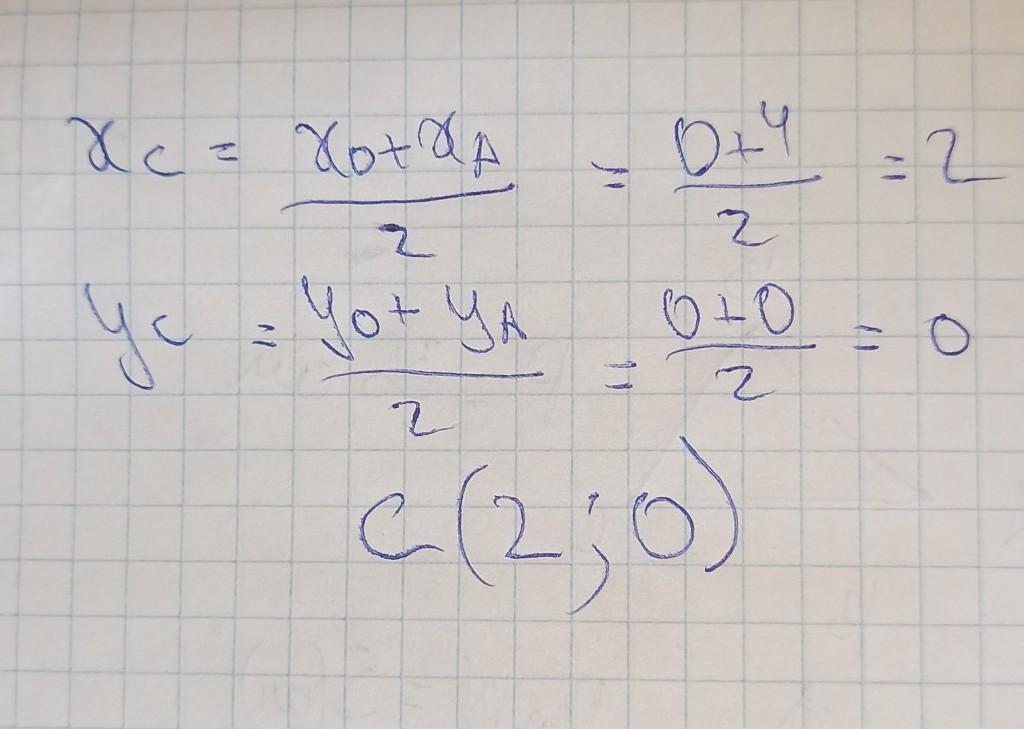 x_C = (x_O + x_A)/2 = (0+4)/2 = 2
y_C = (y_O + y_A)/2 = (0+0)/2 = 0
C(2;0)